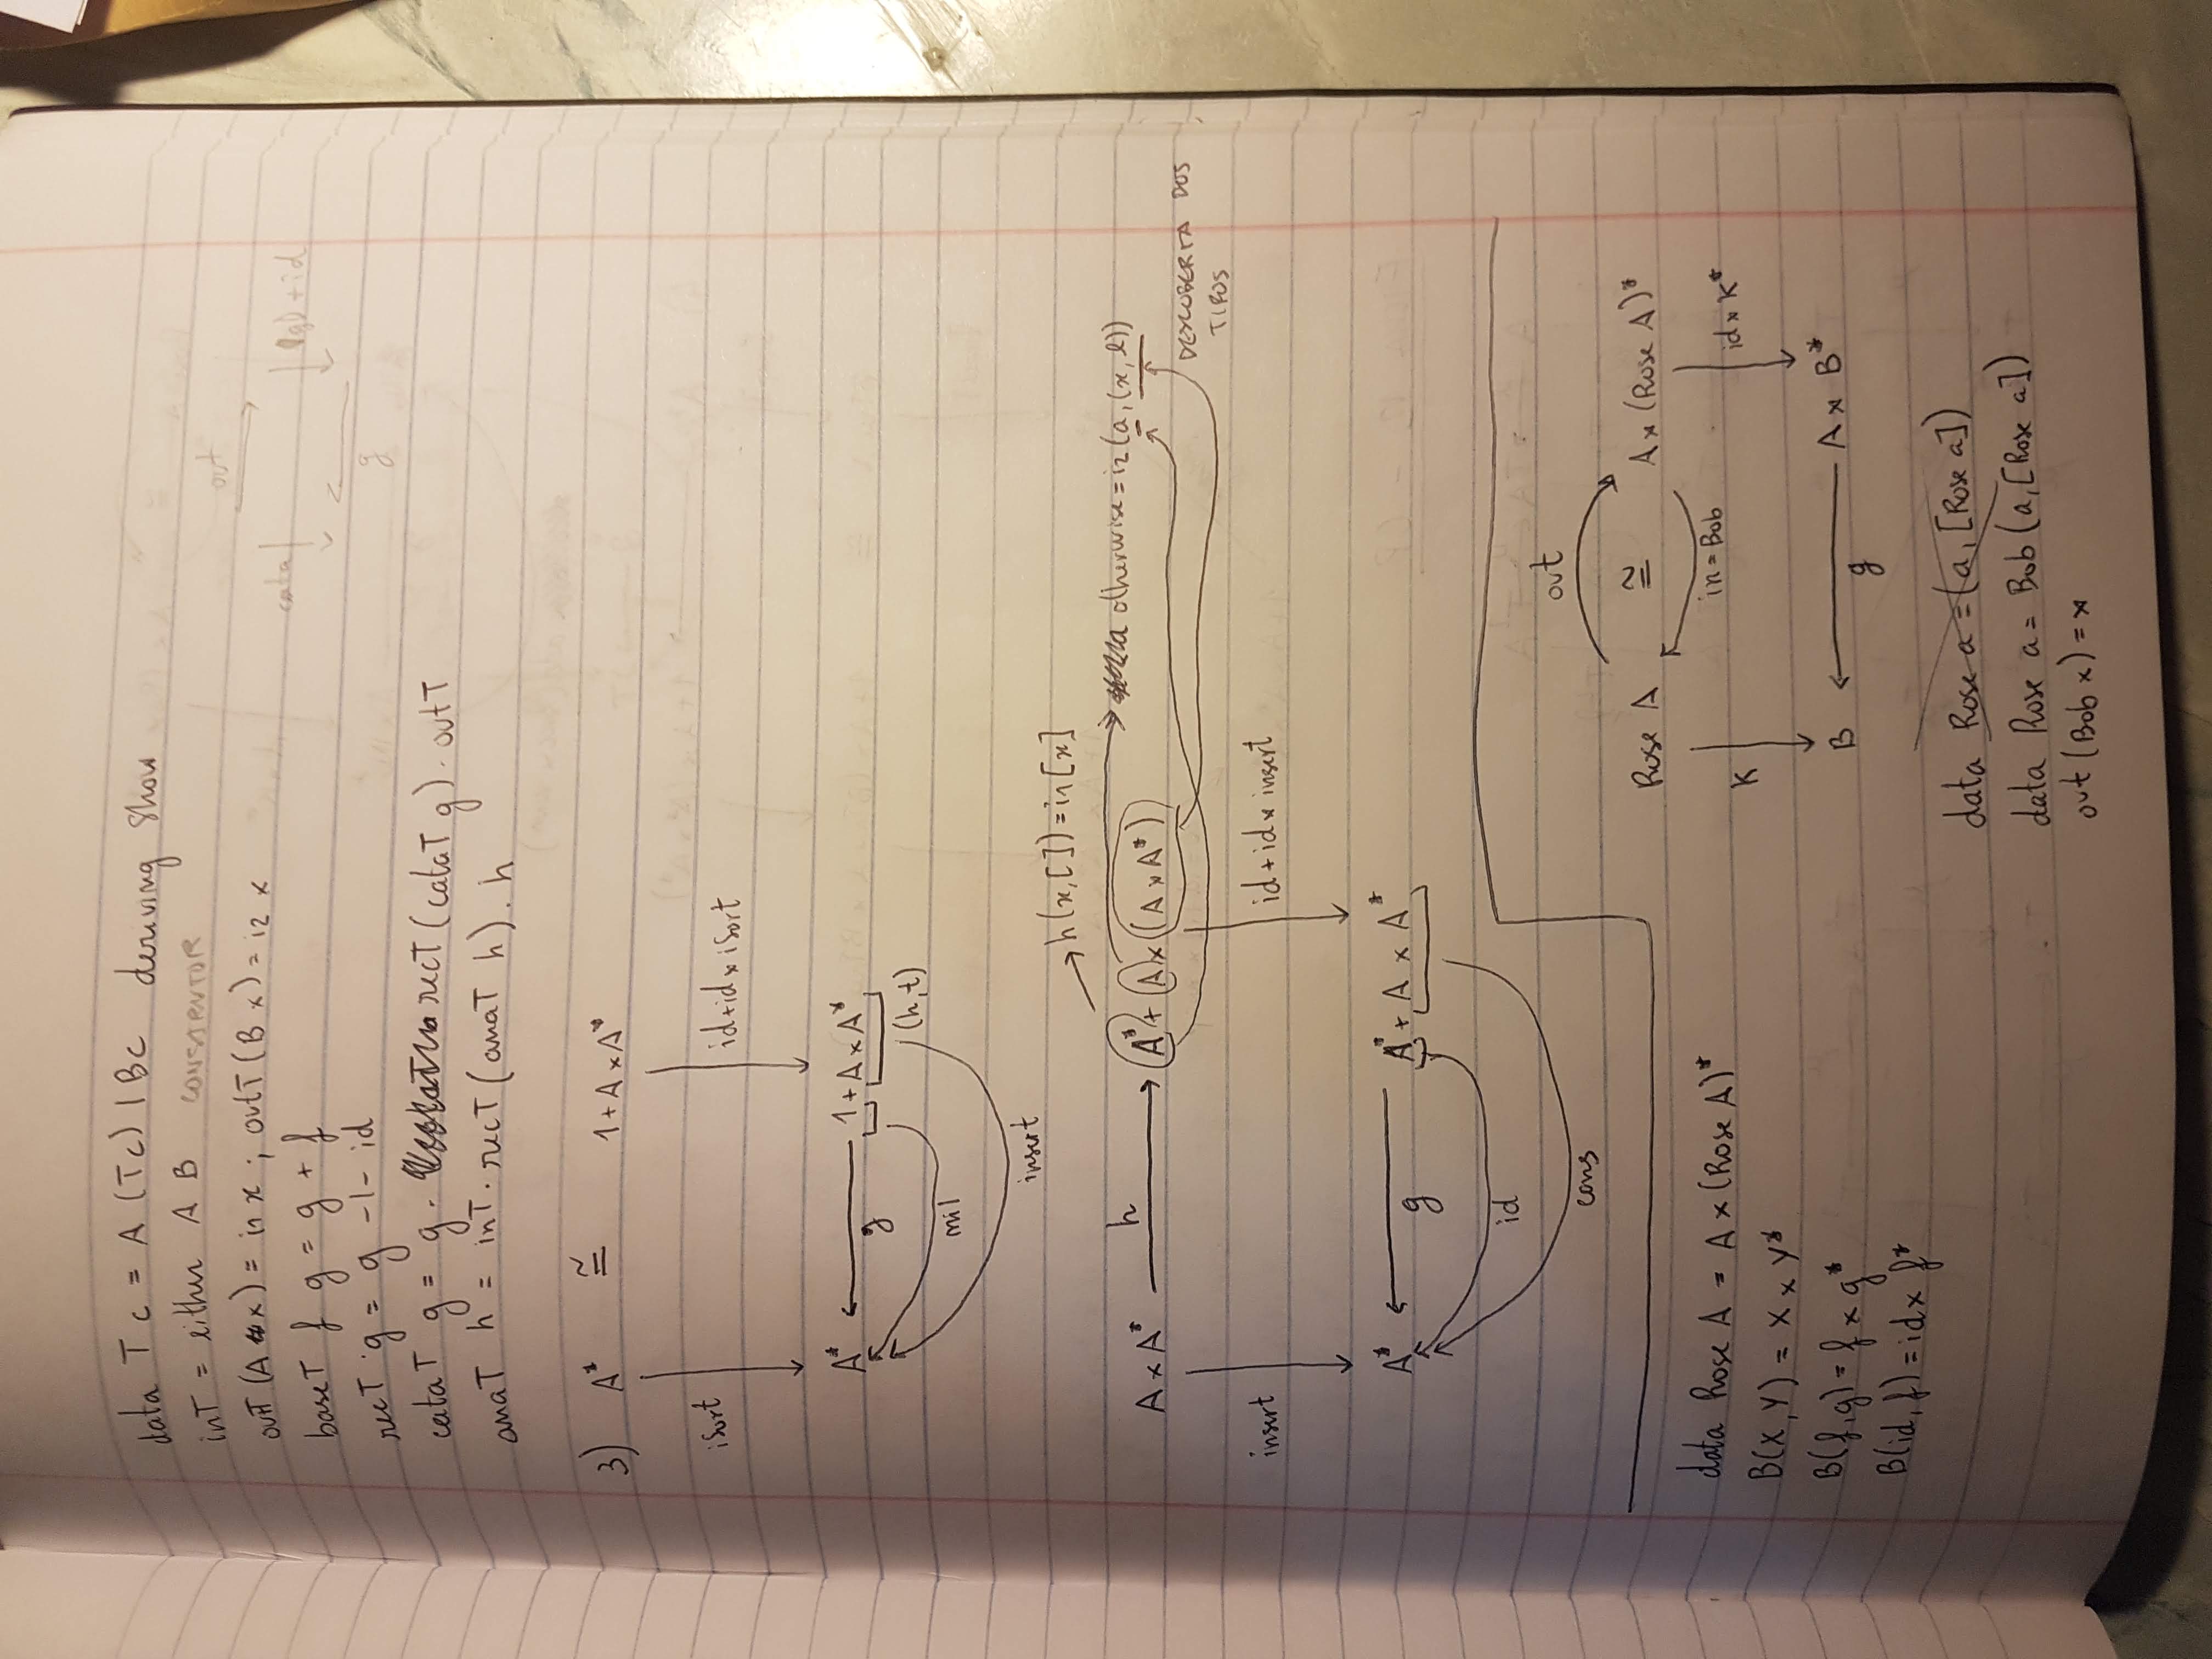 data T c = A (T c) | B c deriving Show
inT = either A B CONSTRUTOR
outT (A x) = i1 x ; outT (B x) = i2 x
baseT f g = g + f
recT g = g -|- id
cataT g = g . recT (cataT g) . outT
anaT h = inT . recT (anaT h) . h
out
cata
(|g|) + id
g
3) A* ≅ 1 + A × A*
isort
id + id × isort
A* g 1 + A × A*
(h, t)
nil
insert
h (x, []) = i1 [x]
otherwise = i2 (a, (x, l))
A × A* h A* + A × (A × A*)
DESCOBERTA DOS
TIPOS
insert
id + id × insert
A* g A* + A × A*
id
cons
out
Rose A ≅ A × (Rose A)*
in = Bob
K
id × K*
B g A × B*
data Rose A = A × (Rose A)*
B(X, Y) = X × Y*
B(f, g) = f × g*
B(id, f) = id × f*
data Rose a = (a, [Rose a])
data Rose a = Bob (a, [Rose a])
out (Bob x) = x